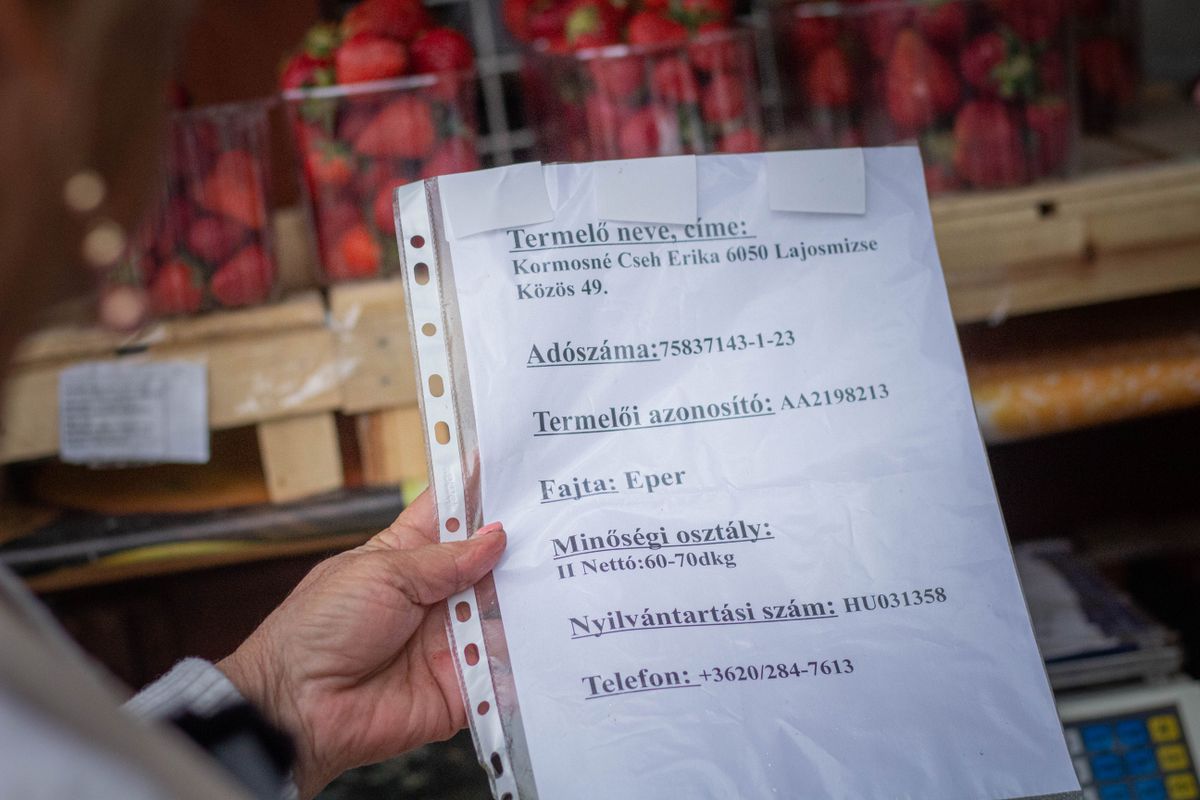 Termelő neve, címe:
Kormosné Cseh Erika 6050 Lajosmizse
Közös 49.
Adószáma:75837143-1-23
Termelői azonosító: AA2198213
Fajta: Eper
Minőségi osztály:
II Nettó:60-70dkg
Nyilvántartási szám: HU031358
Telefon: +3620/284-7613